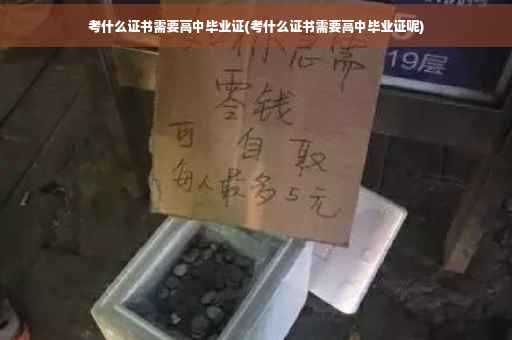 考什么证书需要高中毕业证(考什么证书需要高中毕业证呢)
如你急需
零钱
可自取
每人最多5元
19层